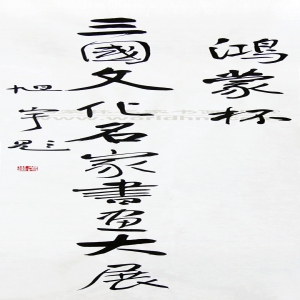 鴻蒙杯
三國文化名家書畫大展
旭宇題